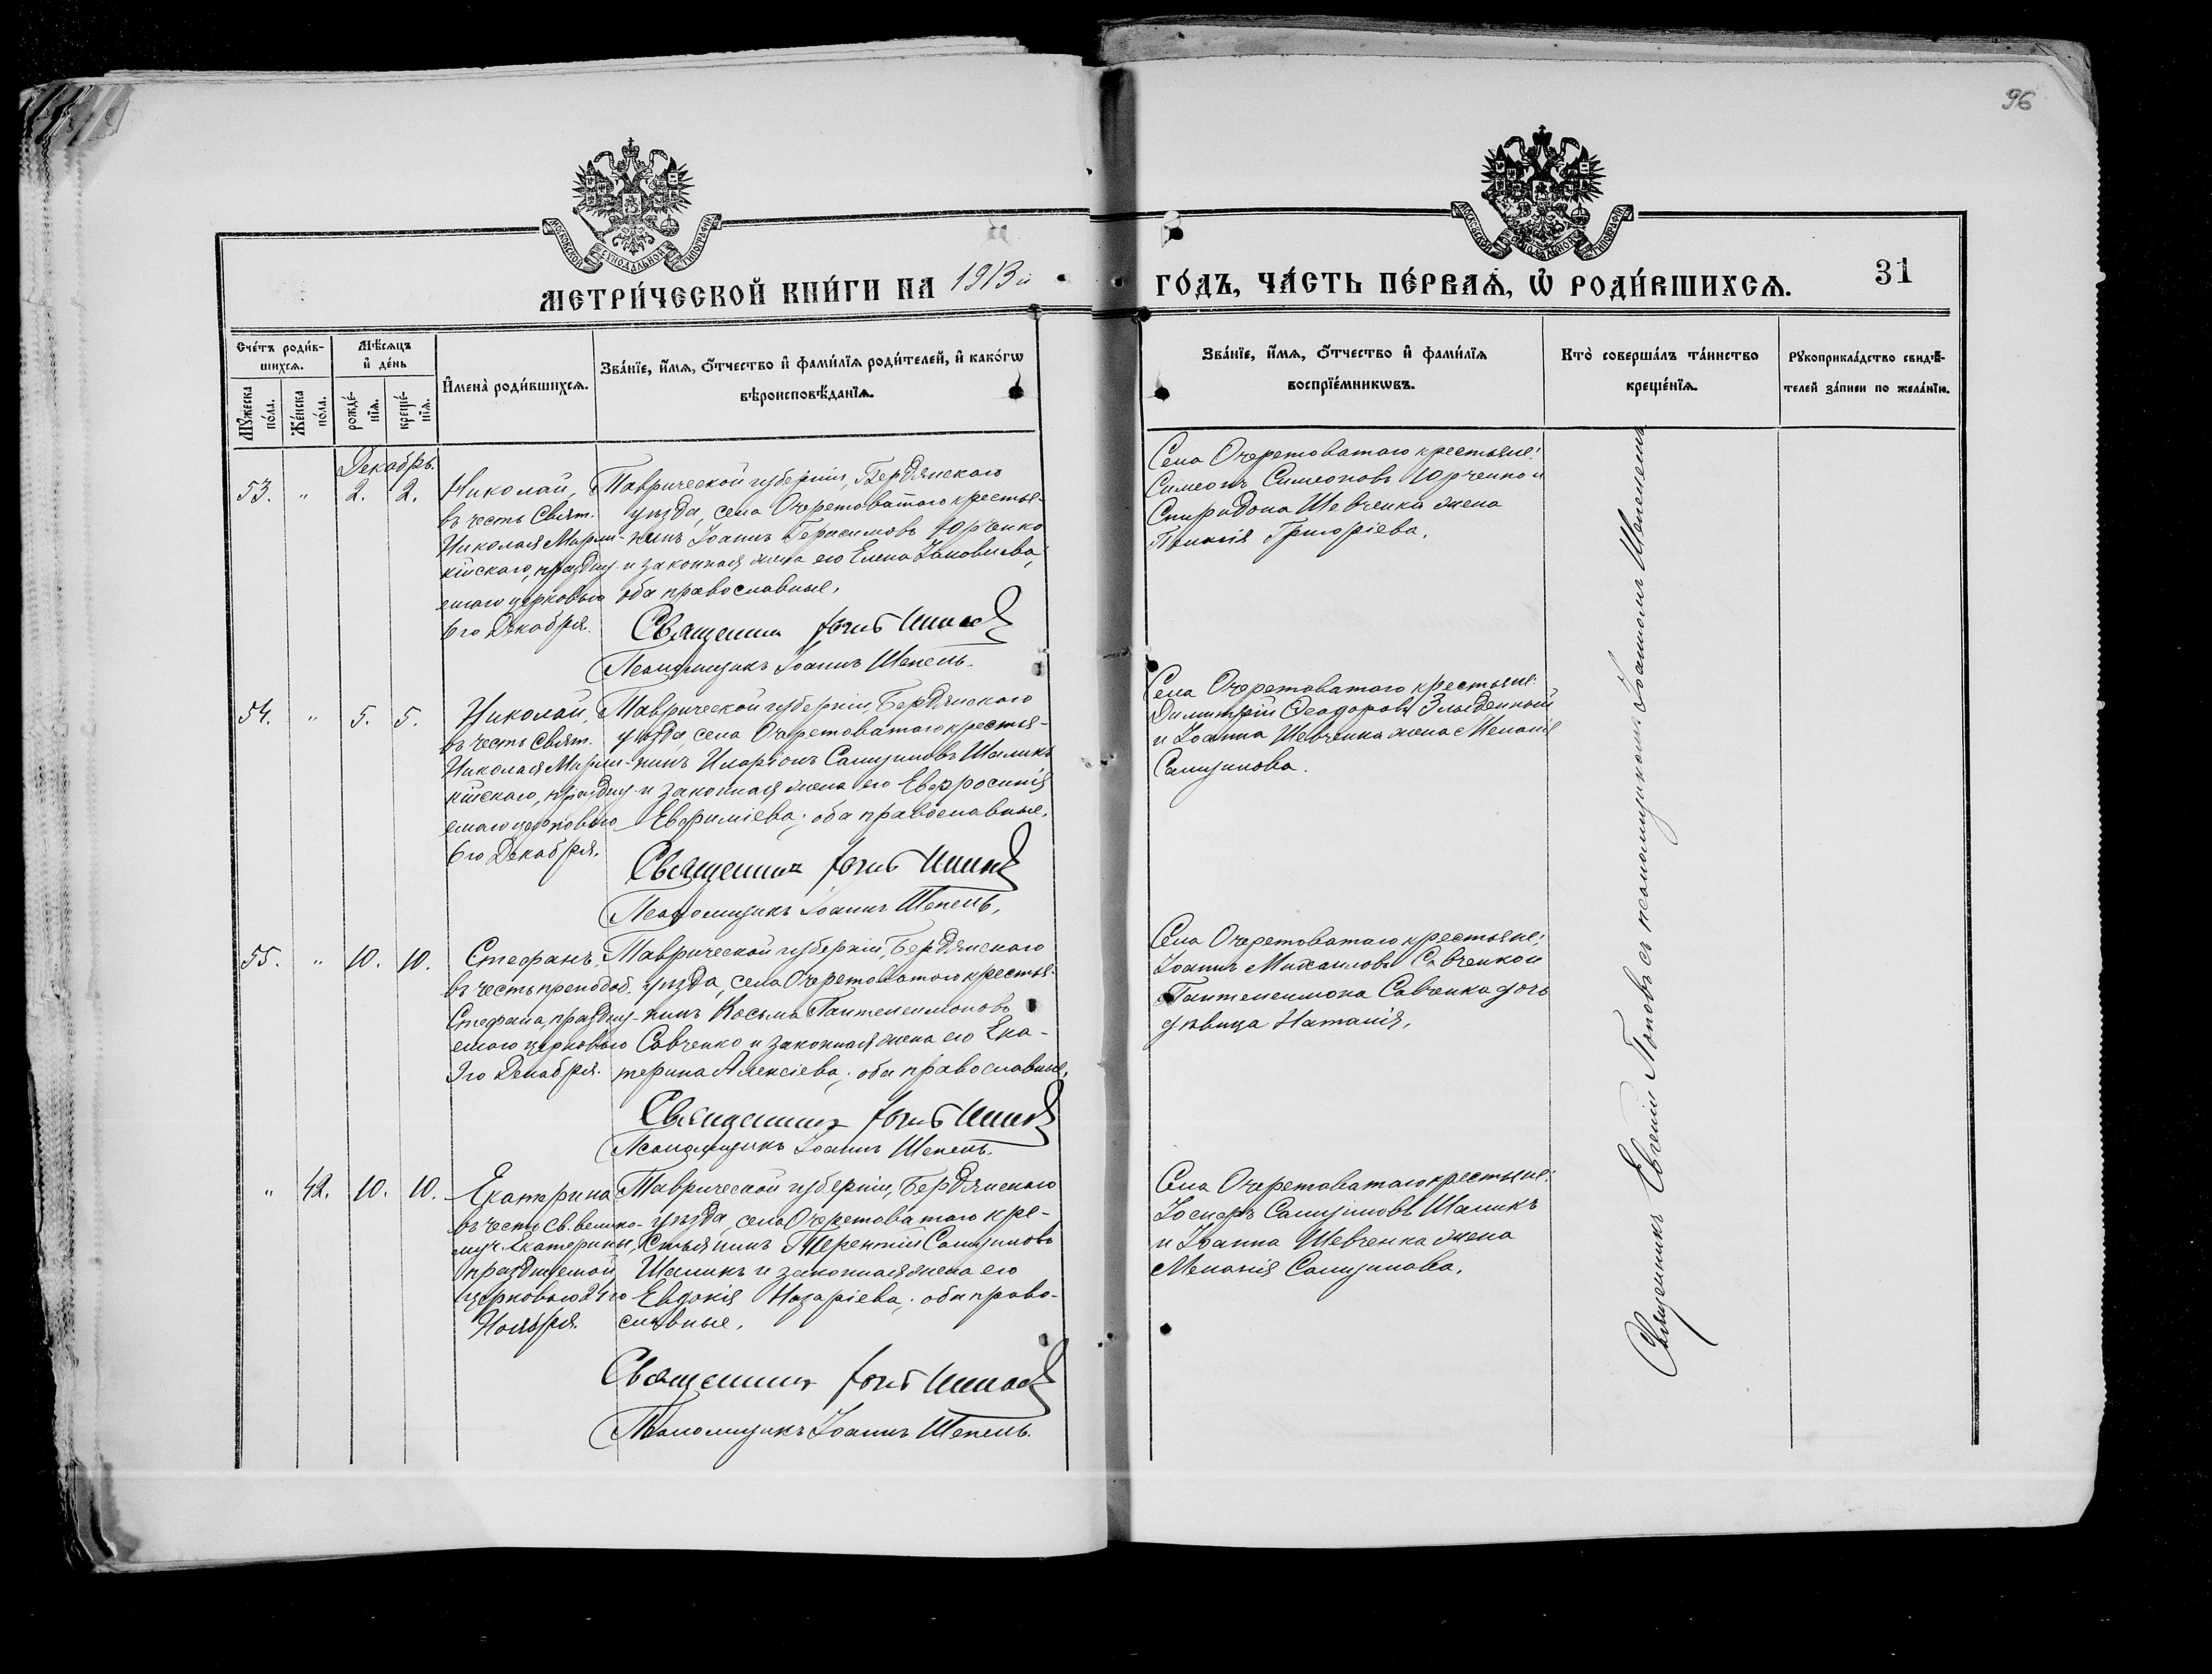 96
МОСКОВСКОЙ СѴНОДАЛЬНОЙ ТИПОГРАФІИ
МОСКОВСКОЙ СѴНОДАЛЬНОЙ ТИПОГРАФІИ
МЕТРИ́ЧЕСКОЙ КНИ́ГИ НА 1913й ГО́ДЪ, ЧА́СТЬ ПЕ́РВАѦ, Ѡ҆ РОДИ́ВШИХСѦ. 31
Сче́тъ роди́в-
шихсѧ.
Мꙋ́жеска
по́ла.
Же́нска
по́ла.
Мѣ́сѧцъ
и҆ де́нь
рожде́-
нїѧ.
креще́-
нїѧ.
И҆мена̀ роди́вшихсѧ.
Зва́нїе, и҆́мѧ, ѻ҆́тчество и҆ фами́лїѧ роди́телей, и҆ како́гѡ
вѣроисповѣ́данїѧ.
Зва́нїе, и҆́мѧ, ѻ҆́тчество и҆ фами́лїѧ
воспрїе́мникѡвъ.
Кто̀ соверша́лъ та́инство
креще́нїѧ.
Рꙋкоприкла́дство свидѣ́-
телей за́писи по жела́нїю.
Декабрь.
53. " 2. 2.
Николай,
въ честь Свят.
Николая Мирли-
кійскаго, праздну-
емаго церковью
6го Декабря.
Таврической губерніи, Бердянскаго
уѣзда, села Очеретоватаго крестья-
нинъ Іоаннъ Герасимовъ Юрченко
и законная жена его Елена Іаковлева,
оба православные.
Священникъ
Псаломщикъ Іоаннъ Шепель.
Села Очеретоватаго крестьяне:
Симеонъ Симеоновъ Юрченко и
Спиридона Шевченка жена
Григоріева.
54. " 5. 5.
Николай,
въ честь Свят.
Николая Мирли-
кійскаго, праздну-
емаго церковью
6го Декабря.
Таврической губерніи, Бердянскаго
уѣзда, села Очеретоватаго крестья-
нинъ Иларіонъ Шаликъ
и законная жена его Евфросинія
Евфиміева; оба православные.
Священникъ
Псаломщикъ Іоаннъ Шепель.
Села Очеретоватаго крестьяне:
Димитрій Ѳеодоровъ
и Іоанна Шевченка жена Меланія
55. " 10. 10.
Стефанъ,
въ честь преподоб.
Стефана, праздну-
емаго церковью
9го Декабря.
Таврической губерніи, Бердянскаго
уѣзда, села Очеретоватаго крестья-
нинъ Косьма Пантелеимоновъ
Савченко и законная жена его Ека-
терина Алексіева; оба православные.
Священникъ
Псаломщикъ Іоаннъ Шепель.
Села Очеретоватаго крестьяне:
Іоаннъ Михаиловъ Савченко и
Пантелеимона Савченка дочь
дѣвица Наталія.
" 42. 10. 10.
Екатерина
въ честь Св. велико-
муч. Екатерины,
празднуемой
церковью 24го
Ноября.
Таврической губерніи, Бердянскаго
уѣзда, села Очеретоватаго кре-
стьянинъ Терентій
Шаликъ и законная жена его
Евдокія Назаріева; оба право-
славные.
Священникъ
Псаломщикъ Іоаннъ Шепель.
Села Очеретоватаго крестьяне:
Іосифъ Шаликъ
и Іоанна Шевченка жена
Меланія
Священникъ Евгеній Поповъ съ псаломщикомъ Іоанномъ Шепелемъ